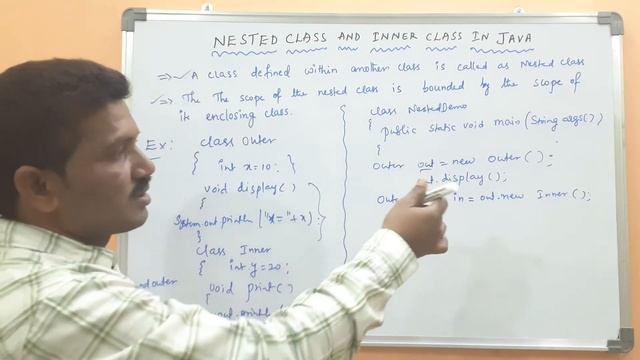 NESTED CLASS AND INNER CLASS IN JAVA
=> A class defined within another class is called as Nested class
=> The The scope of the nested class is bounded by the scope of
its enclosing class.
Ex: class Outer
{ int x=10;
void display()
{
System.out.println("x="+x);
}
class Inner
{ int y=20;
void print()
{
class NestedDemo
{ public static void main(String args[])
{
Outer out = new Outer();
.display();
in = out.new Inner();